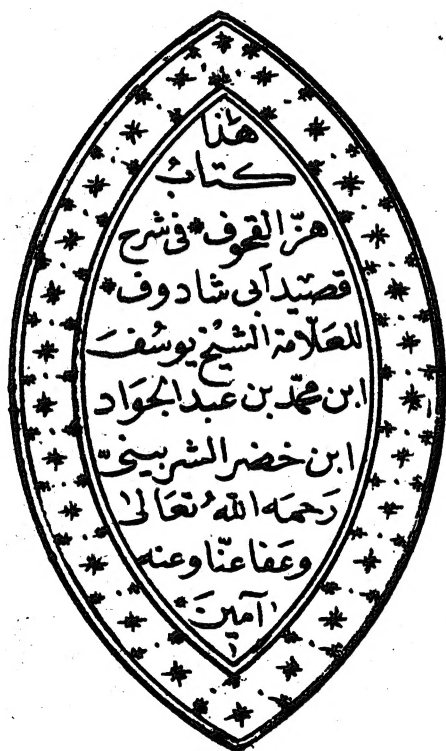 هذا
كتاب
هزّ القحوف * فى شرح
قصيد أبى شادوف *
للعلّامة الشيخ يوسف
ابن محمّد بن عبد الجواد
ابن خضر الشربينىّ
رحمه الله تعالى
وعفا عنّا وعنه
آمين